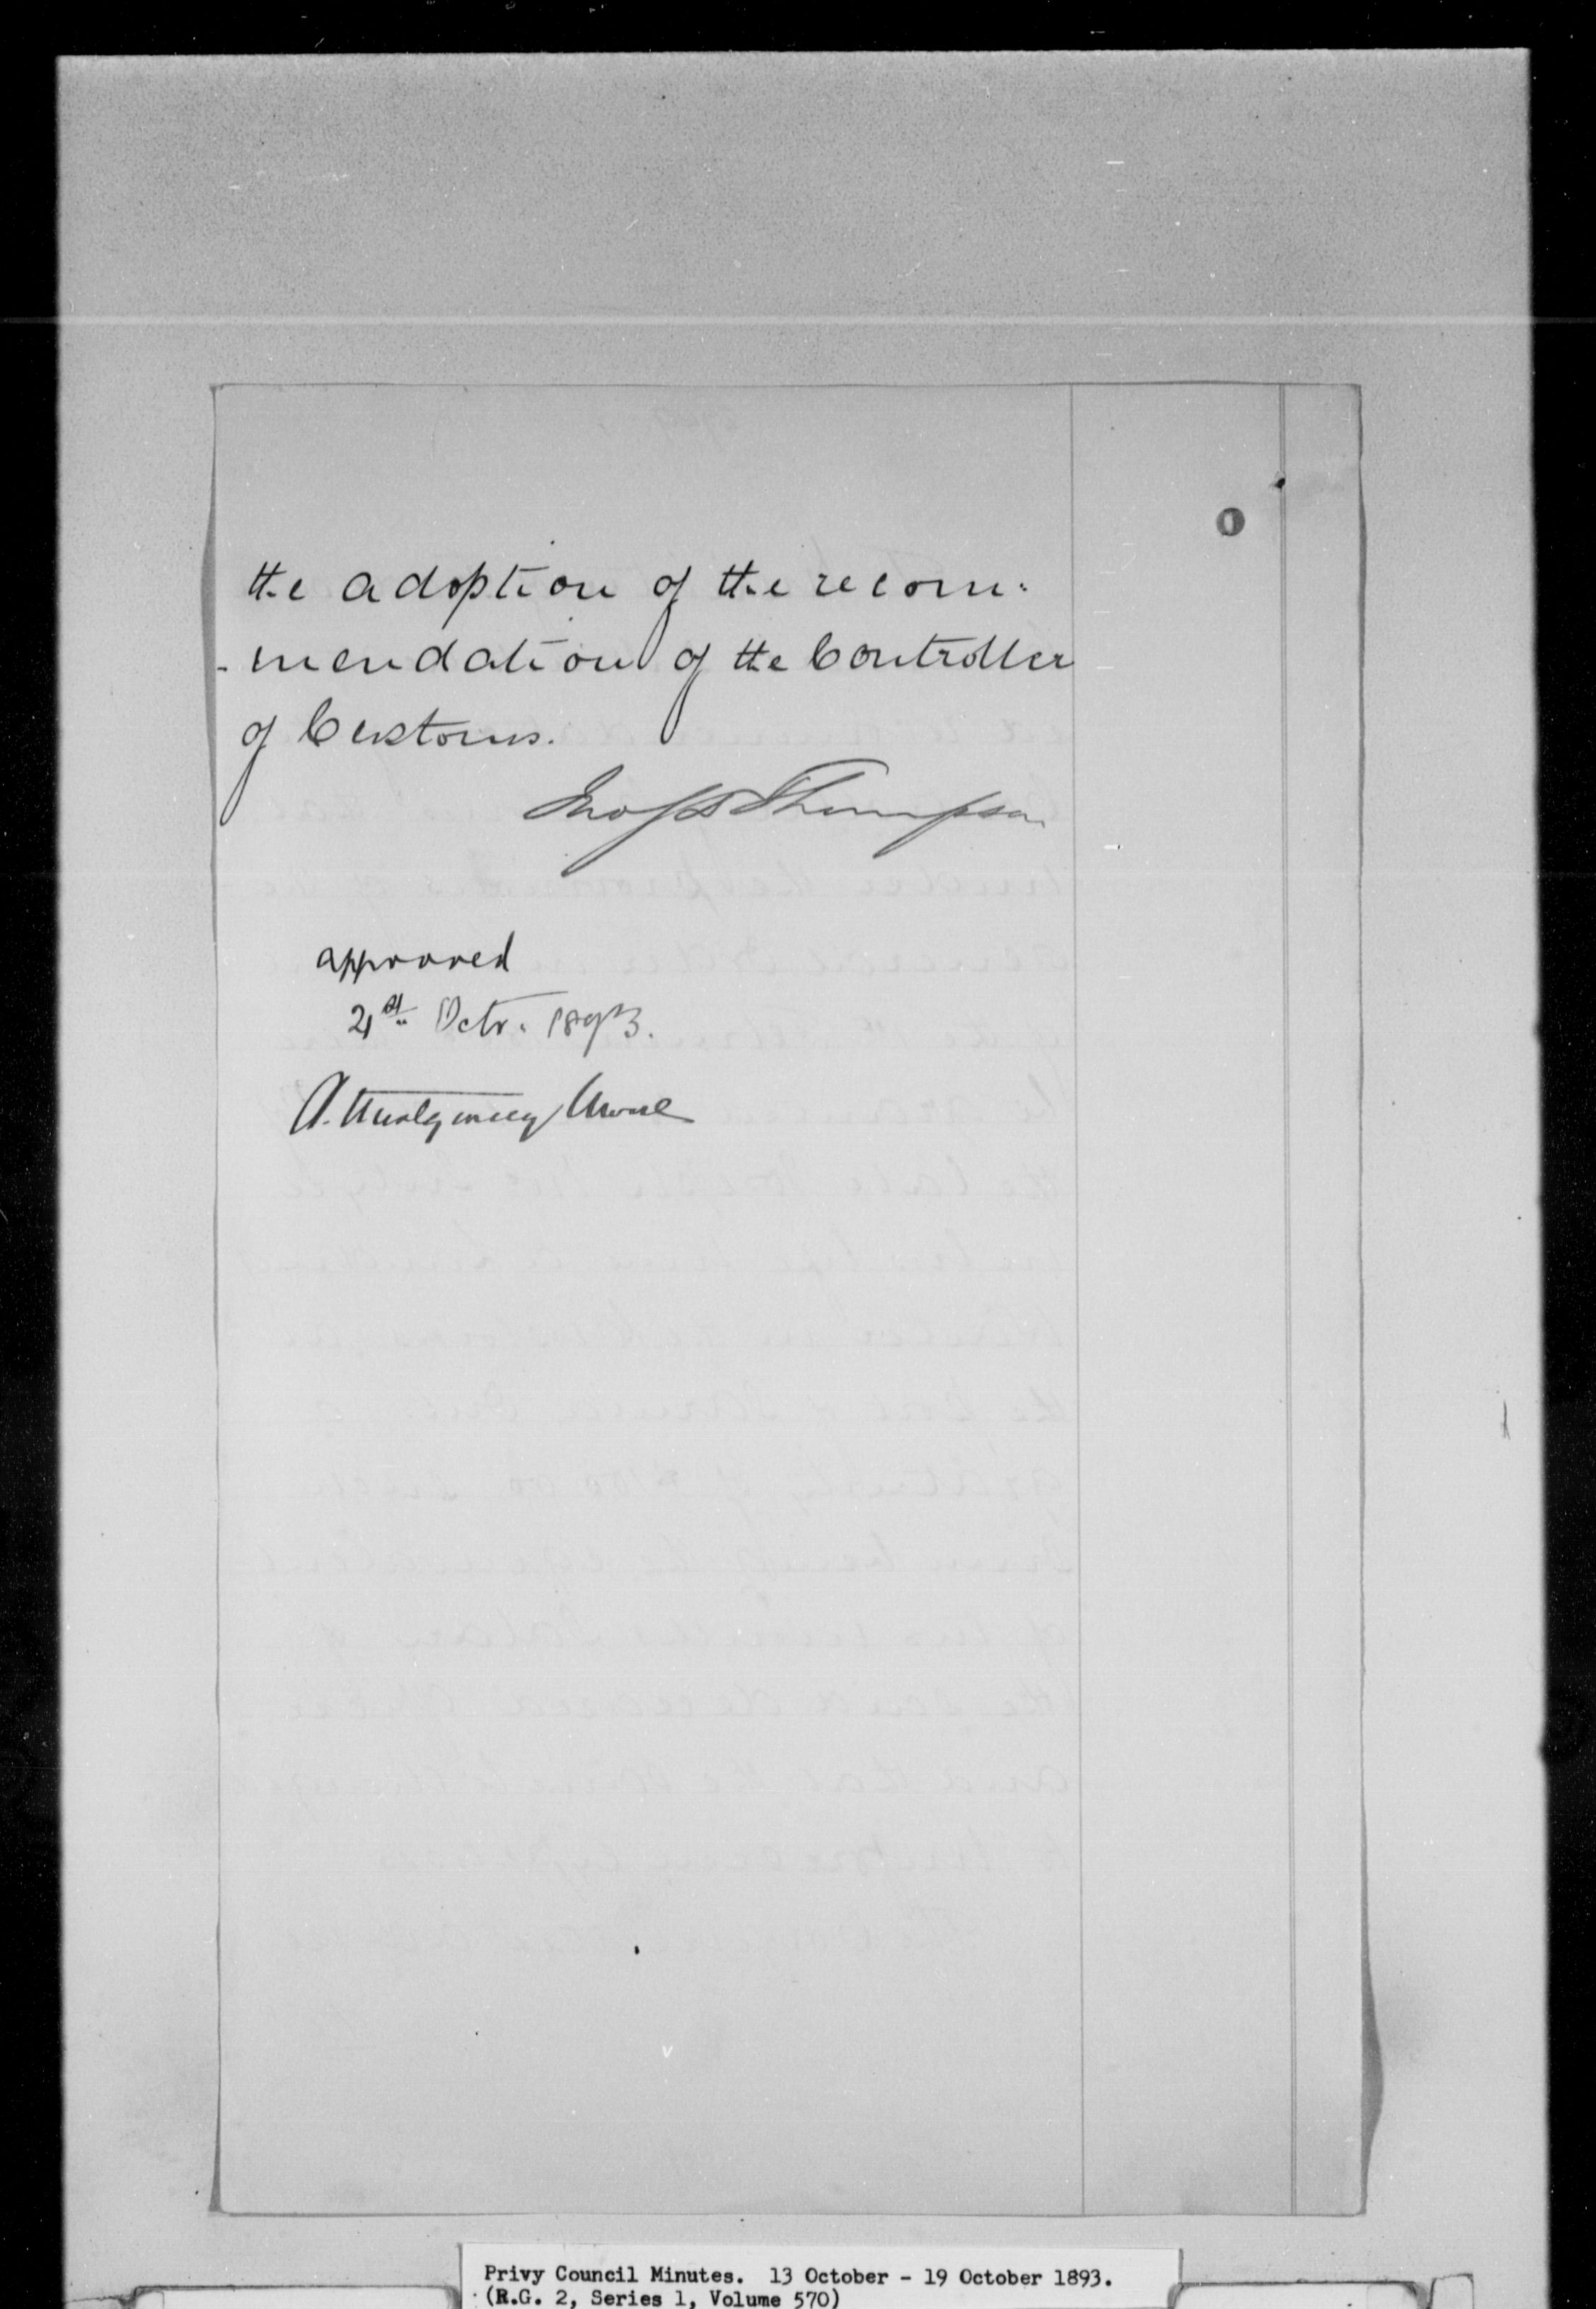 the adoption of the recom:
-mendation of the Controller
of Customs.
Jno S D Thompson
approved
21st Octr. 1893.
A. Montgomery Moore
Privy Council Minutes. 13 October - 19 October 1893.
(R.G. 2, Series 1, Volume 570)